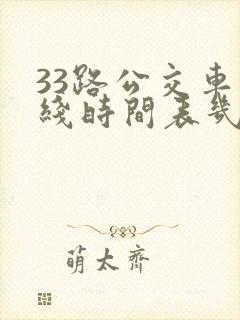 33路公交車
綫時間表幾
萌太齊